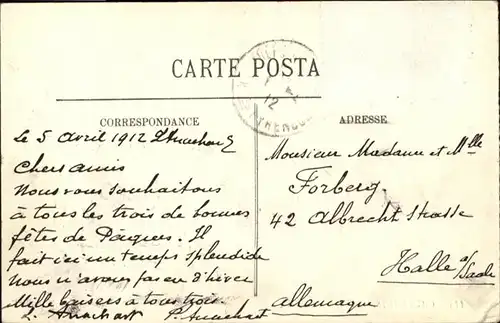 CARTE POSTA
CORRESPONDANCE
ADRESSE
12
Le 5 avril 1912
Chers amis
Nous vous souhaitons
à tous les trois de bonnes
fêtes de Pâques. Il
fait ici un temps splendide
nous n'avons pas eu d'hiver
Mille baisers à tous trois
L. P.
Monsieur Madame et Mlle
Forberg.
42 Albrecht Strasse
Halle a/Saale
Allemagne